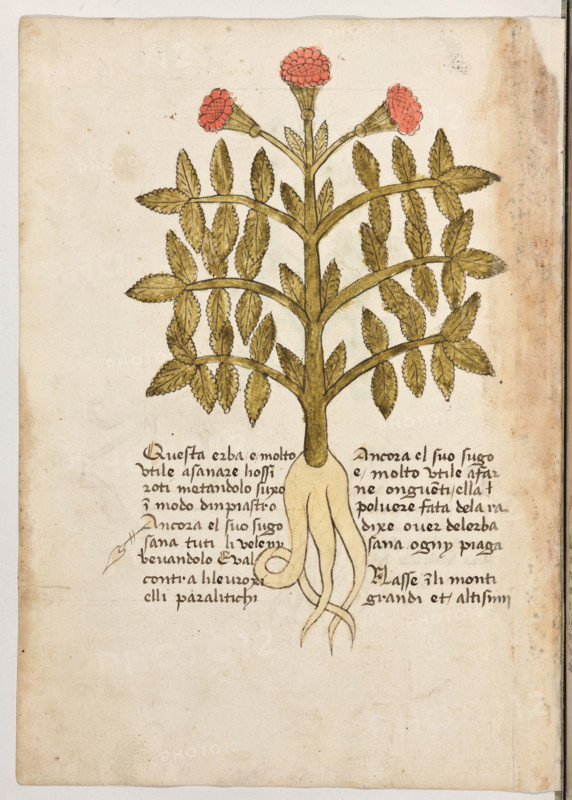 Questa erba e molto
utile asanare hossi
roti metandolo suxo
ī modo dinpiastro
Ancora el suo sugo
sana tuti li veleni
bevandolo E val
contra lileuroxi
elli paralitichi
Ancora el suo sugo
e/ molto utile afar
ne onguēti/ella ł
polvere fata dela ra
dixe over delerba
sana ogny piaga
Nasse ī li monti
grandi et altissimi